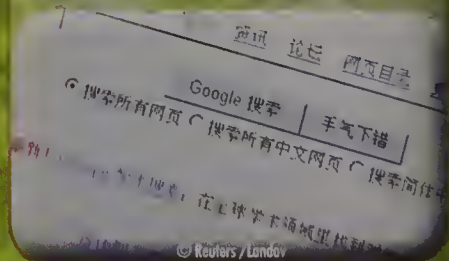 资讯 论坛 网页目录
Google 搜索 手气下错
搜索所有网页 搜索所有中文网页 搜索简体中
在全球学术领域里找到
© Reuters / Landov